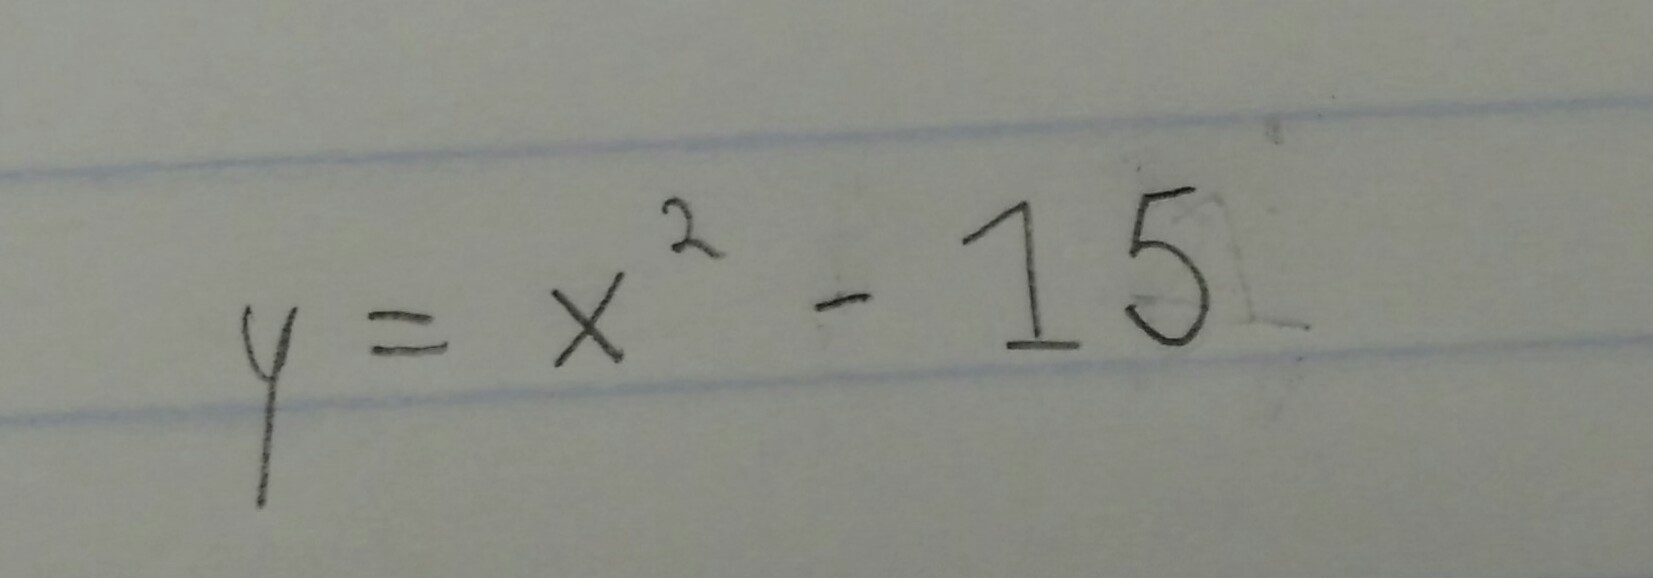 y = x² - 15